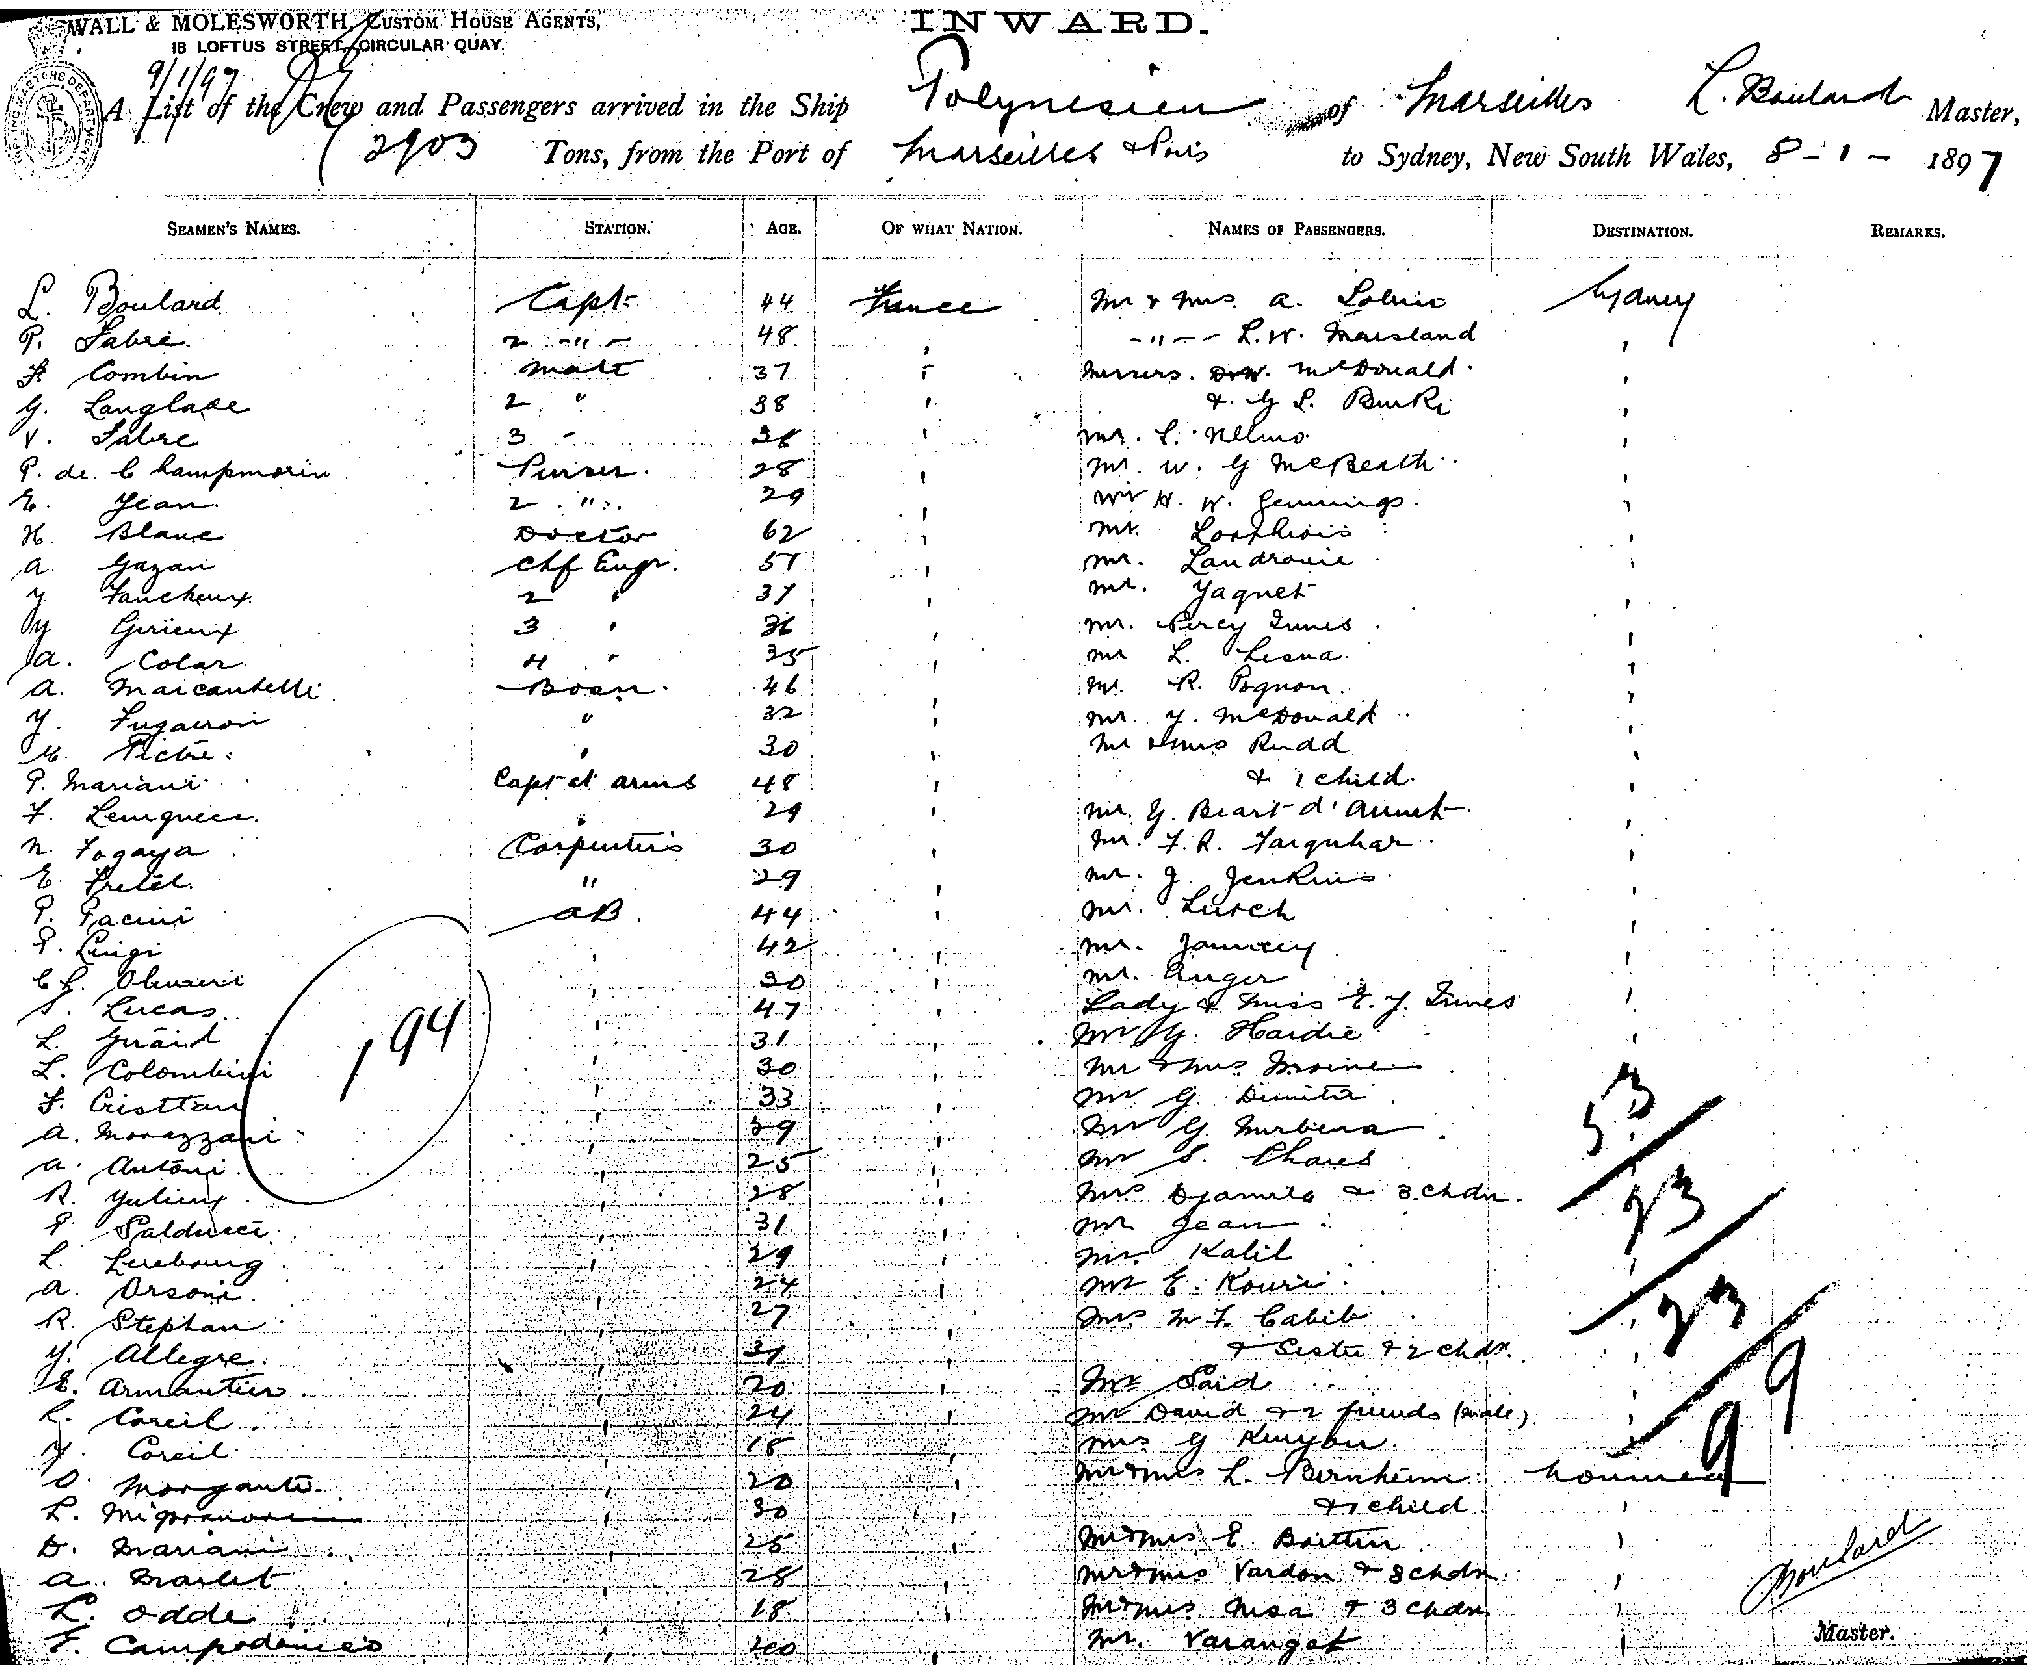 WALL & MOLESWORTH, CUSTOM HOUSE AGENTS,
18 LOFTUS STREET, CIRCULAR QUAY.
INWARD.
9/1/97
A List of the Crew and Passengers arrived in the Ship Polynesien of Marseilles L. Boulard Master,
2903 Tons, from the Port of Marseilles & Ports to Sydney, New South Wales, 8-1-1897
SEAMEN'S NAMES. STATION. AGE. OF WHAT NATION. NAMES OF PASSENGERS. DESTINATION. REMARKS.
L. Boulard Capt. 44 France Mr & Mrs A. Sydney
P. Fabre 2 -"- 48 -"- L. W. Marsland
F. Combin Mate 37 Messrs. D.W. McDonald
G. Langlade 2 " 38 & G L. Burke
V. Fabre 3 " Mr. L. Nelmo
P. de Champmorin Purser 28 Mr. W. G McBeath
E. Jean 2 " 29 Mr H. W. Jennings
H. Blanc Doctor 62 Mr.
A. Gazan Chf Engr. 51 Mr. Landrovie
J Faucheux 2 " 37 Mr. Jaquet
J Girieux 3 " 36 Mr. Percy Innes
A. Colar 4 " 35 Mr L.
A. Marcantelli Bosn. 46 Mr. R. Pognon
J. Fugairon " 32 Mr. J. McDonald
" 30 Mr & Mrs Rudd
P. Mariani Capt at arms 48 & 1 child
F. " 29 Mr. G. Beart d'
N. Fogaya Carpenters 30 Mr. F. R. Farquhar
E. Pretel " 29 Mr. J. Jenkins
P. Pacini AB 44 Mr. Lurch
P. Luigi " 42 Mr.
Ch. Olivieri " 30 Mr. Auger
S. Lucas " 47 Lady & Miss E. J. Innes
L. Girard " 31 Mr G. Hardie
L. Colombini " 30 Mr & Mrs Moine
F. " 33 Mr G. Dimita
A. Morazzani " 39 Mr G.
A. Antoni " 25 Mr S. Chares
R. Julieux " 28 Mrs Djamila & 3 Chdn.
P. Palducci " 31 Mr Jean
L. " 29 Mr. Kalil
A. Orsoni " 24 Mr E. Kouri
R. Stephan " 27 Mrs M F. Cabib
J. Allegre " & Sister & 2 chdn.
E. Armantier " 20 Mr Said
L. Coreil " 24 Mr David & 2 friends (male)
J. Coreil " 18 Mrs G Kenyon
O. Morganti " 20 Mr & Mrs L. Bernheim Noumea
L. " 30 & 1 child
D. Mariani " 25 Mr & Mrs E.
A. Marlet " 28 Mr & Mrs Vardon & 3 chdn
L. Odde " 18 Mr & Mrs & 3 Chdn
F. Campodonico " 20 Mr. Varangot
194
53
23
23
99
Boulard
Master.